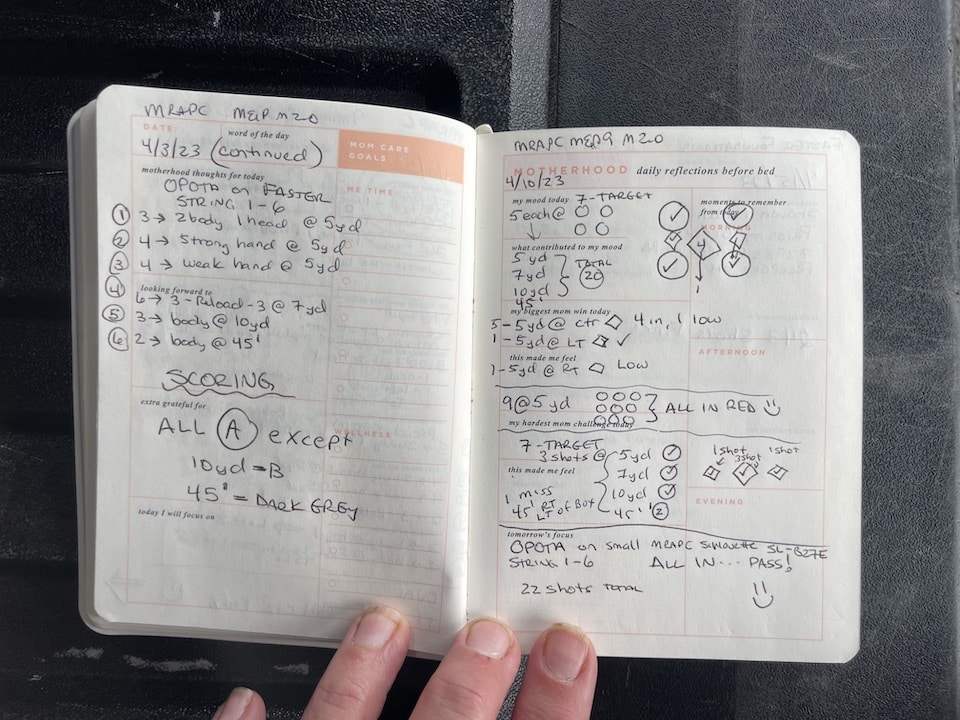 MRAPC MEP M20
DATE:
word of the day
4/3/23 (continued)
MOM CARE
GOALS
motherhood thoughts for today
OPOTA on FASTER
STRING 1-6
ME TIME
1 3 → 2 body 1 head @ 5yd
2 4 → Strong hand @ 5yd
3 4 → weak hand @ 5yd
looking forward to
4 6 → 3-Reload-3 @ 7yd
5 3 → body @ 10yd
6 2 → body @ 45'
SCORING
extra grateful for
ALL A except
WELLNESS
10yd = B
45' = DARK GREY
today I will focus on
MRAPC MEP9 M20
MOTHERHOOD daily reflections before bed
4/10/23
my mood today 7-TARGET
moments to remember
from today
5 each @
MORNING
4
1
what contributed to my mood
5yd
7yd TOTAL
10yd 20
45'
my biggest mom win today
5-5yd @ ctr 4 in, 1 low
1-5yd @ LT ✓
this made me feel
AFTERNOON
1-5yd @ RT LOW
9@5yd ALL IN RED
my hardest mom challenge today
7-TARGET
3 shots @ 5yd ✓
1 shot 3 shot 1 shot
this made me feel
7yd ✓
1 miss 10yd ✓
45' RT 45' 2
LT of Bot
EVENING
tomorrow's focus
OPOTA on small MRAPC Silhouette SL-B27E
STRING 1-6 ALL IN... PASS!
22 shots TOTAL